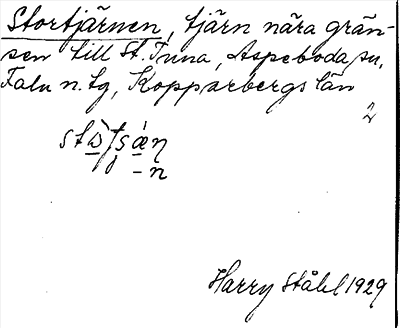 Stortjärnen, tjärn nära grän-
sen till St. Tuna, Aspeboda sn,
Falu n. tg, Kopparbergs län
2
Harry Ståhl 1929